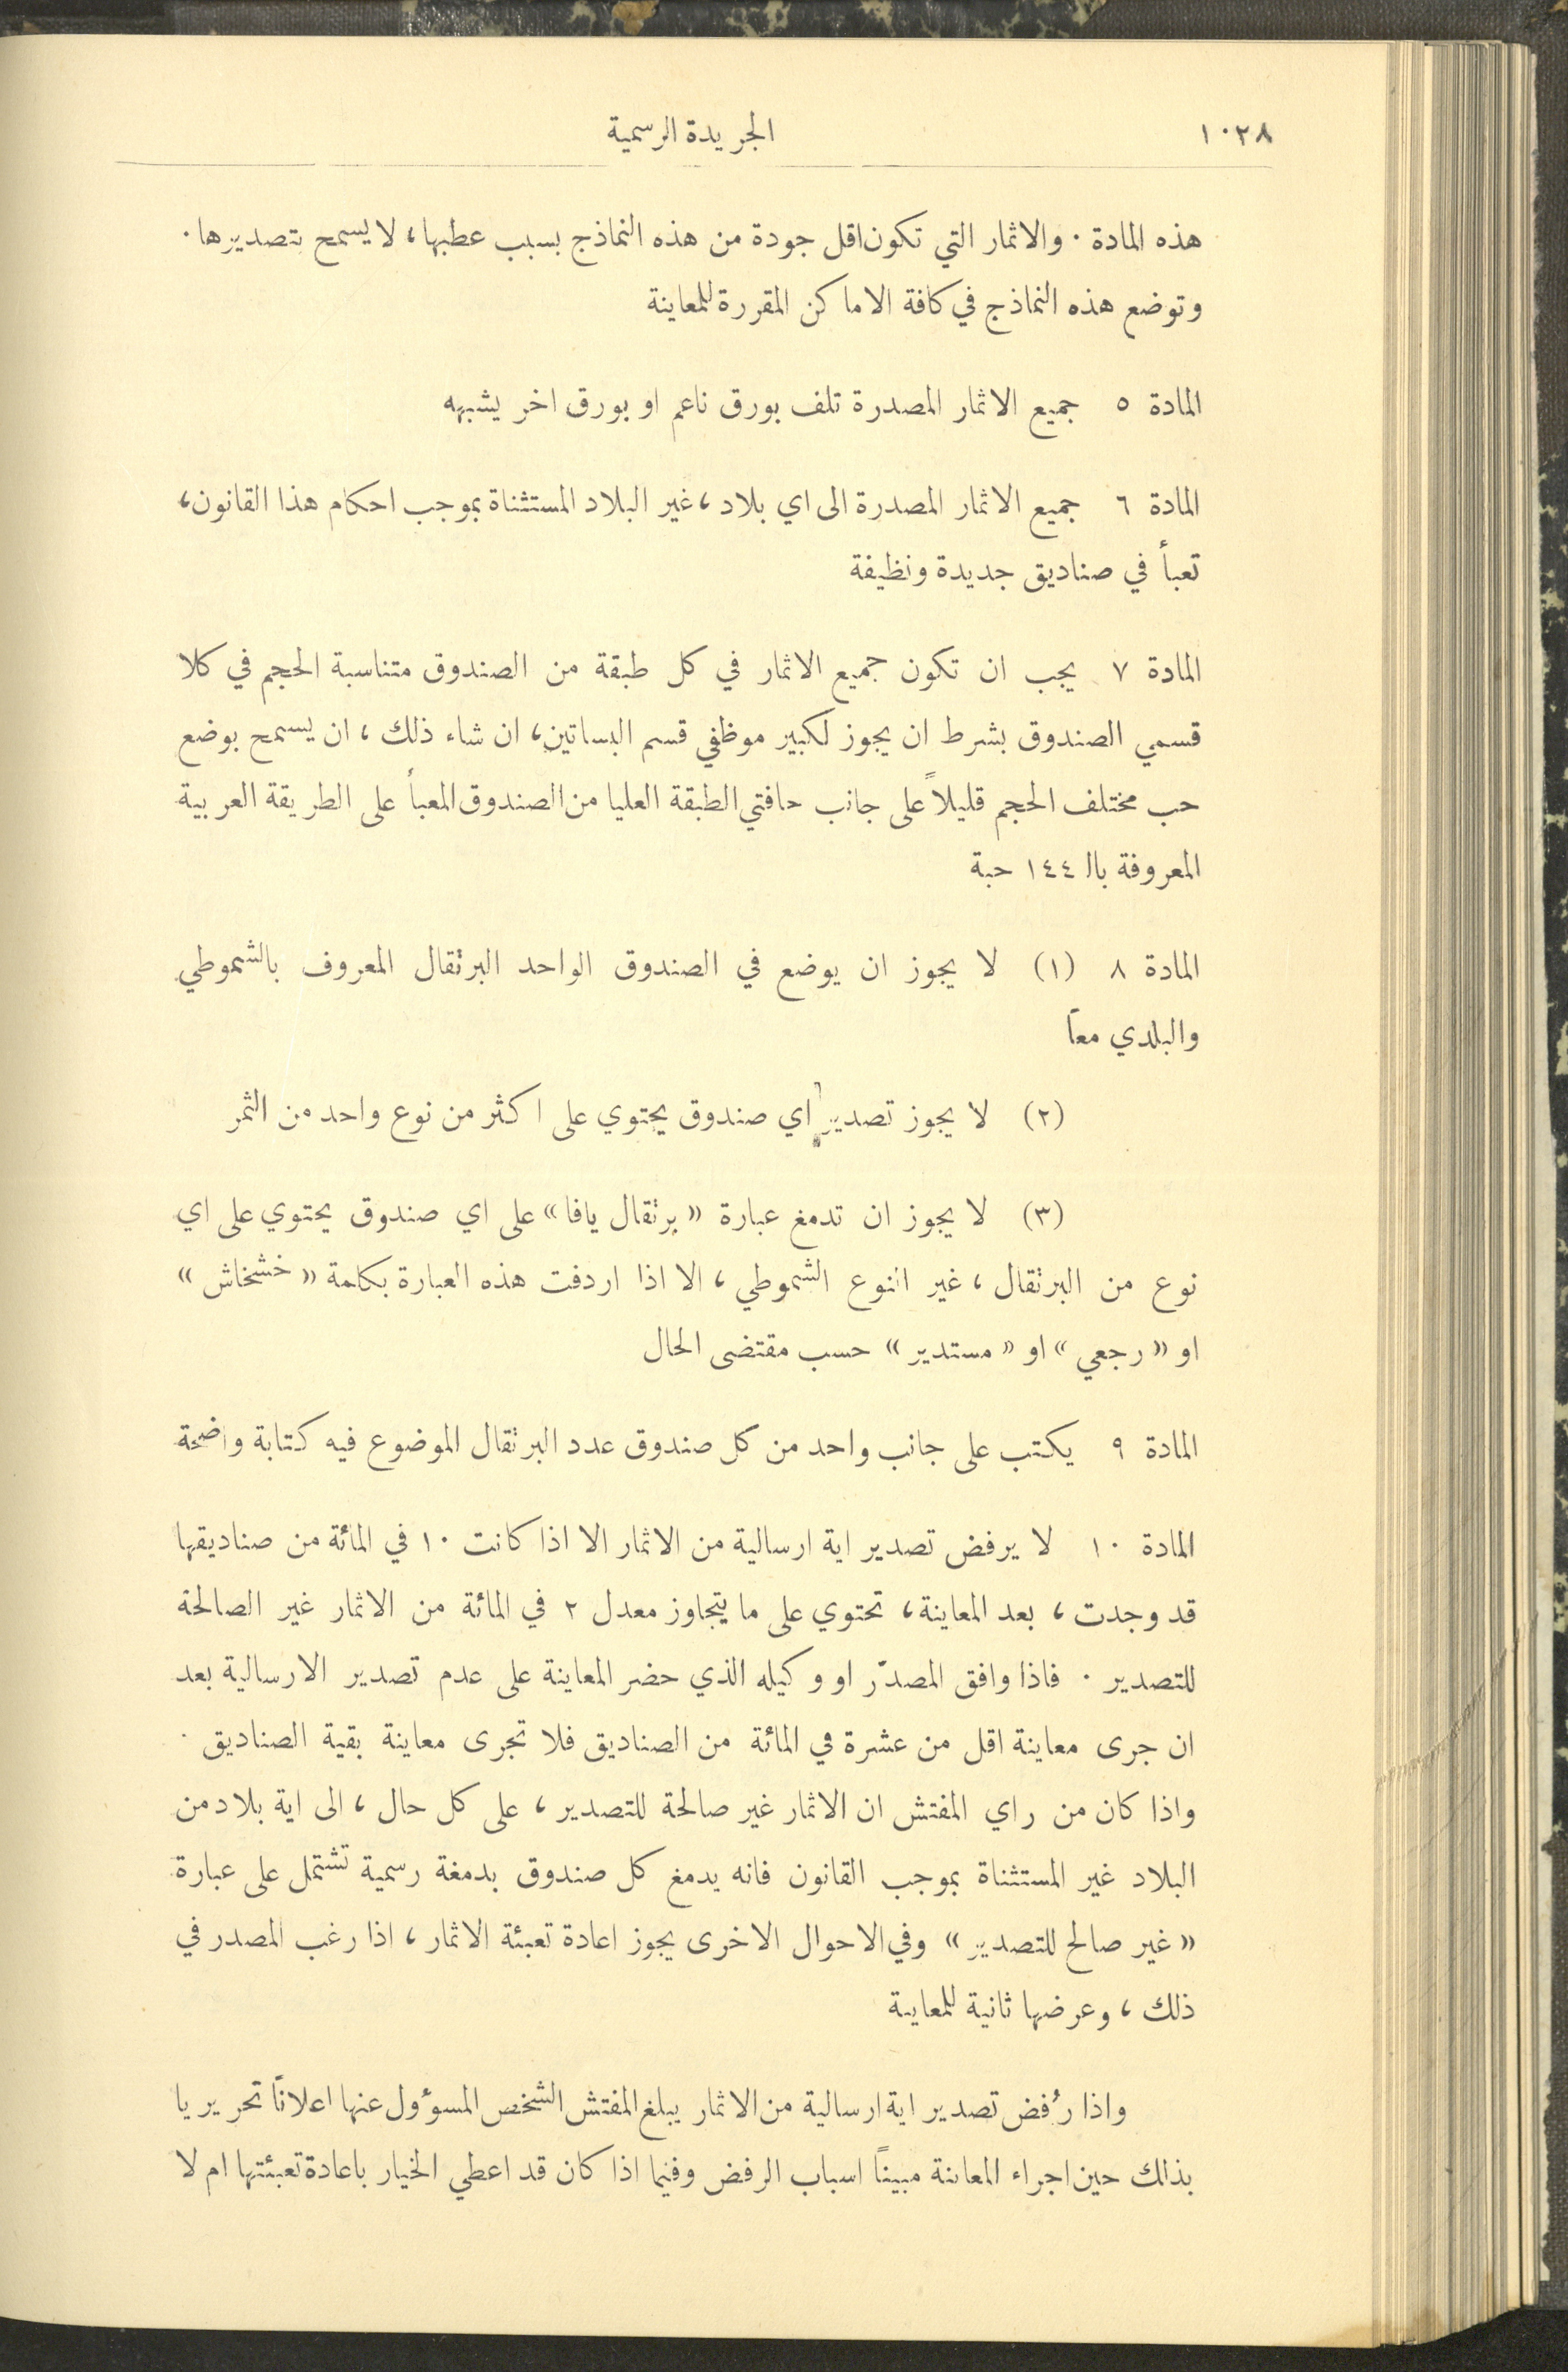 ١٠٢٨
الجريدة الرسمية
هذه المادة · والاثمار التي تكون اقل جودة من هذه النماذج بسبب عطبها، لا يسمح بتصديرها ·
وتوضع هذه النماذج في كافة الاماكن المقررة للمعاينة
المادة ٥ جميع الاثمار المصدرة تلف بورق ناعم او بورق اخر يشبهه
المادة ٦ جميع الاثمار المصدرة الى اي بلاد، غير البلاد المستثناة بموجب احكام هذا القانون،
تعبأ في صناديق جديدة ونظيفة
المادة ٧ يجب ان تكون جميع الاثمار في كل طبقة من الصندوق متناسبة الحجم في كلا
قسمي الصندوق بشرط ان يجوز لكبير موظفي قسم البساتين، ان شاء ذلك، ان يسمح بوضع
حب مختلف الحجم قليلاً على جانب حافتي الطبقة العليا من الصندوق المعبأ على الطريقة العربية
المعروفة بالـ ١٤٤ حبة
المادة ٨ (١) لا يجوز ان يوضع في الصندوق الواحد البرتقال المعروف بالشموطي
والبلدي معاً
(٢) لا يجوز تصدير اي صندوق يحتوي على اكثر من نوع واحد من الثمر
(٣) لا يجوز ان تدمغ عبارة «برتقال يافا» على اي صندوق يحتوي على اي
نوع من البرتقال، غير النوع الشموطي، الا اذا اردفت هذه العبارة بكلمة «خشخاش»
او «رجعي» او «مستدير» حسب مقتضى الحال
المادة ٩ يكتب على جانب واحد من كل صندوق عدد البرتقال الموضوع فيه كتابة واضحة
المادة ١٠ لا يرفض تصدير اية ارسالية من الاثمار الا اذا كانت ١٠ في المائة من صناديقها
قد وجدت، بعد المعاينة، تحتوي على ما يتجاوز معدل ٢ في المائة من الاثمار غير الصالحة
للتصدير · فاذا وافق المصدّر او وكيله الذي حضر المعاينة على عدم تصدير الارسالية بعد
ان جرى معاينة اقل من عشرة في المائة من الصناديق فلا تجرى معاينة بقية الصناديق ·
واذا كان من راي المفتش ان الاثمار غير صالحة للتصدير، على كل حال، الى اية بلاد من
البلاد غير المستثناة بموجب القانون فانه يدمغ كل صندوق بدمغة رسمية تشتمل على عبارة
«غير صالح للتصدير» وفي الاحوال الاخرى يجوز اعادة تعبئة الاثمار، اذا رغب المصدر في
ذلك، وعرضها ثانية للمعاينة
واذا رُفض تصدير اية ارسالية من الاثمار يبلغ المفتش الشخص المسؤول عنها اعلاناً تحريريا
بذلك حين اجراء المعاينة مبيناً اسباب الرفض وفيما اذا كان قد اعطي الخيار باعادة تعبئتها ام لا